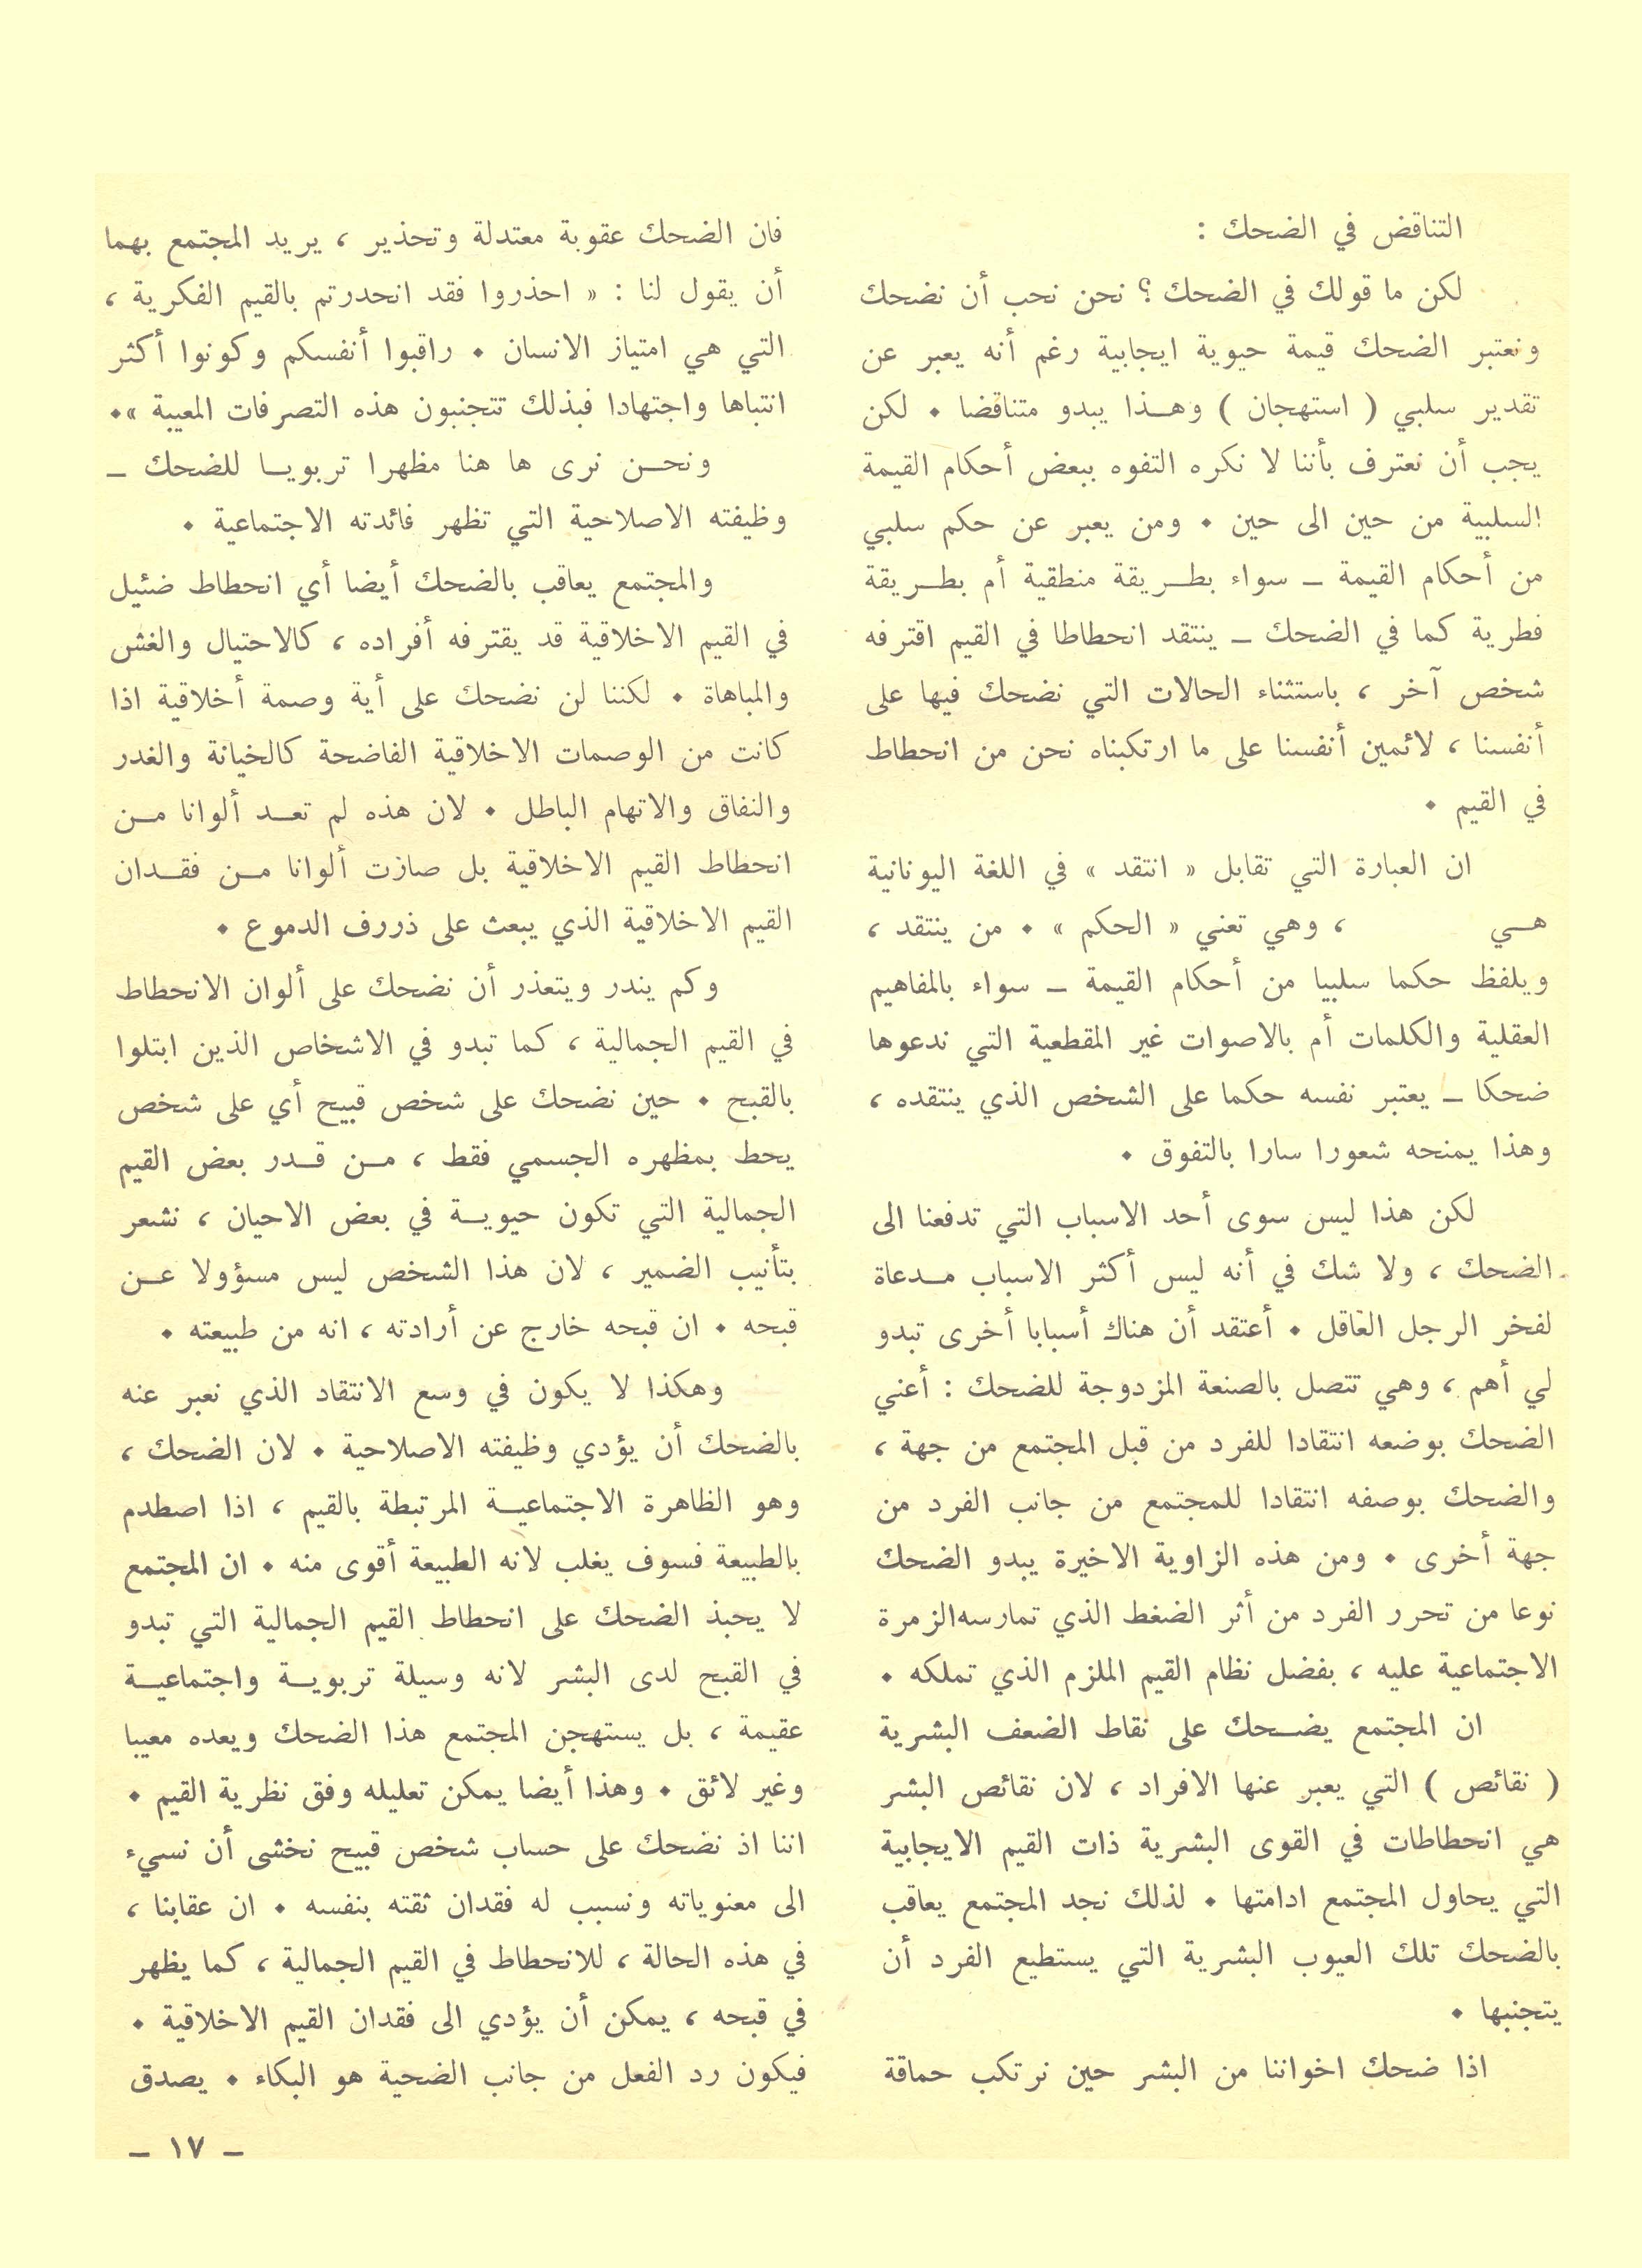 التناقض في الضحك :
لكن ما قولك في الضحك ؟ نحن نحب أن نضحك
ونعتبر الضحك قيمة حيوية ايجابية رغم أنه يعبر عن
تقدير سلبي ( استهجان ) وهـذا يبدو متناقضا • لكن
يجب أن نعترف بأننا لا نكره التفوه ببعض أحكام القيمة
السلبية من حين الى حين • ومن يعبر عن حكم سلبي
من أحكام القيمة ــ سواء بطـريقة منطقية أم بطـريقة
فطرية كما في الضحك ــ ينتقد انحطاطا في القيم اقترفه
شخص آخر ، باستثناء الحالات التي نضحك فيها على
أنفسنا ، لائمين أنفسنا على ما ارتكبناه نحن من انحطاط
في القيم •
ان العبارة التي تقابل « انتقد » في اللغة اليونانية
هـي ، وهي تعني « الحكم » • من ينتقد ،
ويلفظ حكما سلبيا من أحكام القيمة ــ سواء بالمفاهيم
العقلية والكلمات أم بالاصوات غير المقطعية التي ندعوها
ضحكا ــ يعتبر نفسه حكما على الشخص الذي ينتقده ،
وهذا يمنحه شعورا سارا بالتفوق •
لكن هذا ليس سوى أحد الاسباب التي تدفعنا الى
الضحك ، ولا شك في أنه ليس أكثر الاسباب مـدعاة
لفخر الرجل العاقل • أعتقد أن هناك أسبابا أخرى تبدو
لي أهم ، وهي تتصل بالصنعة المزدوجة للضحك : أعني
الضحك بوضعه انتقادا للفرد من قبل المجتمع من جهة ،
والضحك بوصفه انتقادا للمجتمع من جانب الفرد من
جهة أخرى • ومن هذه الزاوية الاخيرة يبدو الضحك
نوعا من تحرر الفرد من أثر الضغط الذي تمارسه الزمرة
الاجتماعية عليه ، بفضل نظام القيم الملزم الذي تملكه •
ان المجتمع يضـحك على نقاط الضعف البشرية
( نقائص ) التي يعبر عنها الافراد ، لان نقائص البشر
هي انحطاطات في القوى البشرية ذات القيم الايجابية
التي يحاول المجتمع ادامتها • لذلك نجد المجتمع يعاقب
بالضحك تلك العيوب البشرية التي يستطيع الفرد أن
يتجنبها •
اذا ضحك اخواننا من البشر حين نرتكب حماقة
فان الضحك عقوبة معتدلة وتحذير ، يريد المجتمع بهما
أن يقول لنا : « احذروا فقد انحدرتم بالقيم الفكرية ،
التي هي امتياز الانسان • راقبوا أنفسكم وكونوا أكثر
انتباها واجتهادا فبذلك تتجنبون هذه التصرفات المعيبة »•
ونحـن نرى ها هنا مظهرا تربويـا للضحك ــ
وظيفته الاصلاحية التي تظهر فائدته الاجتماعية •
والمجتمع يعاقب بالضحك أيضا أي انحطاط ضئيل
في القيم الاخلاقية قد يقترفه أفراده ، كالاحتيال والغش
والمباهاة • لكننا لن نضحك على أية وصمة أخلاقية اذا
كانت من الوصمات الاخلاقية الفاضحة كالخيانة والغدر
والنفاق والاتهام الباطل • لان هذه لم تعـد ألوانا مـن
انحطاط القيم الاخلاقية بل صارت ألوانا مـن فقـدان
القيم الاخلاقية الذي يبعث على ذررف الدموع •
وكم يندر ويتعذر أن نضحك على ألوان الانحطاط
في القيم الجمالية ، كما تبدو في الاشخاص الذين ابتلوا
بالقبح • حين نضحك على شخص قبيح أي على شخص
يحط بمظهره الجسمي فقط ، مـن قـدر بعض القيم
الجمالية التي تكون حيويـة في بعض الاحيان ، نشعر
بتأنيب الضمير ، لان هذا الشخص ليس مسؤولا عـن
قبحه • ان قبحه خارج عن أرادته ، انه من طبيعته •
وهكذا لا يكون في وسع الانتقاد الذي نعبر عنه
بالضحك أن يؤدي وظيفته الاصلاحية • لان الضحك ،
وهو الظاهرة الاجتماعيـة المرتبطة بالقيم ، اذا اصطدم
بالطبيعة فسوف يغلب لانه الطبيعة أقوى منه • ان المجتمع
لا يحبذ الضحك على انحطاط القيم الجمالية التي تبدو
في القبح لدى البشر لانه وسيلة تربويـة واجتماعيـة
عقيمة ، بل يستهجن المجتمع هذا الضحك ويعده معيبا
وغير لائق • وهذا أيضا يمكن تعليله وفق نظرية القيم •
اننا اذ نضحك على حساب شخص قبيح نخشى أن نسيء
الى معنوياته ونسبب له فقدان ثقته بنفسه • ان عقابنا ،
في هذه الحالة ، للانحطاط في القيم الجمالية ، كما يظهر
في قبحه ، يمكن أن يؤدي الى فقدان القيم الاخلاقية •
فيكون رد الفعل من جانب الضحية هو البكاء • يصدق
ــ ١٧ ــ